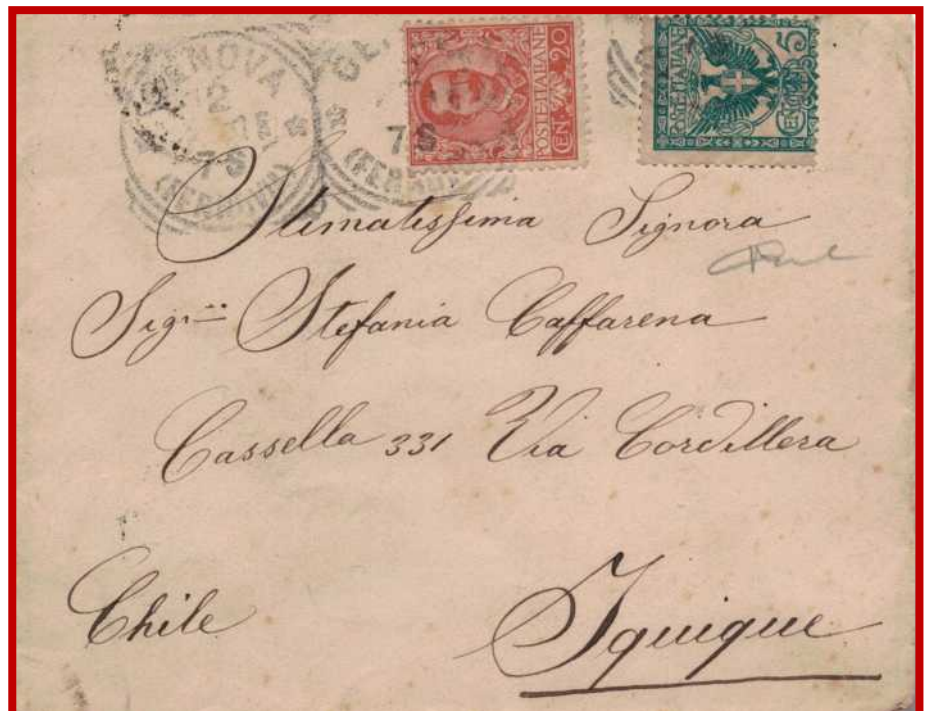 GENOVA
12
7S
(FERROVIA)
7S
POSTE ITALIANE
CEN. 20
POSTE ITALIANE
CEN. 5
Stimatissima Signora
Sigra Stefania Caffarena
Cassella 331 Via Cordillera
Chile Iquique